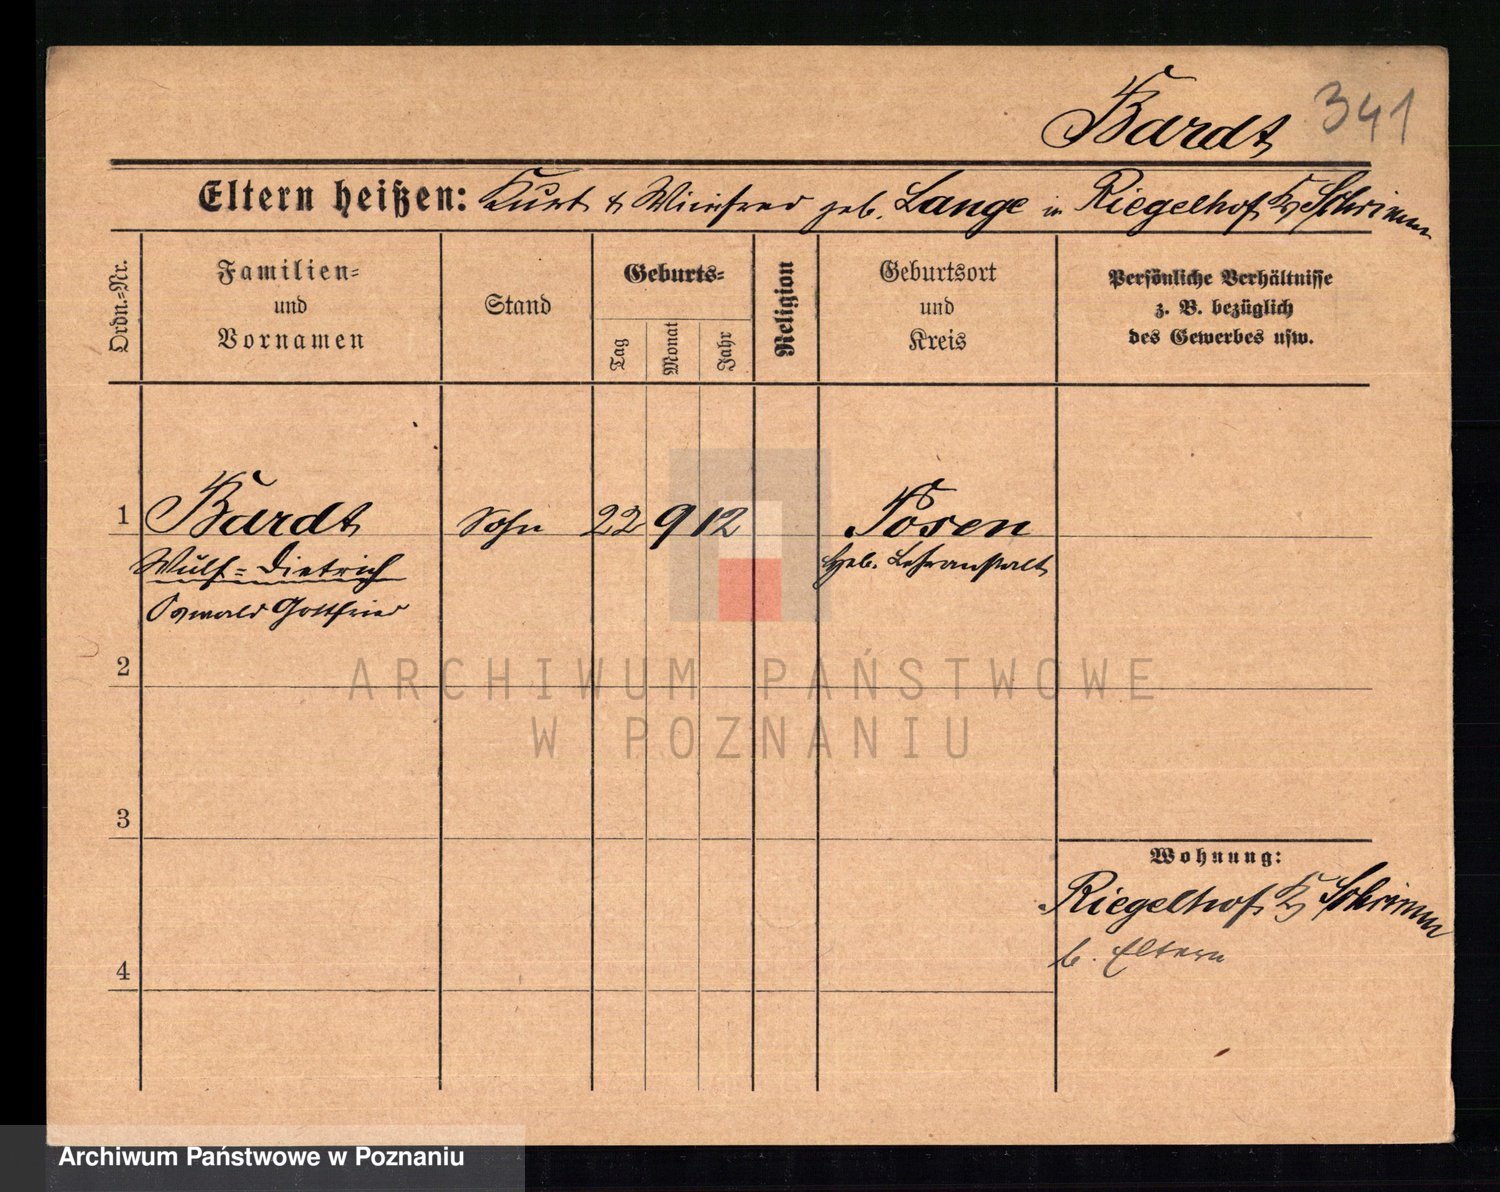 Bardt 341
Eltern heißen: Kurt & Winifred geb. Lange in Riegelhof Kr Schrimm
Ordn.-Nr.
Familien-
und
Vornamen
Stand
Geburts-
Tag
Monat
Jahr
Religion
Geburtsort
und
Kreis
Persönliche Verhältnisse
z. B. bezüglich
des Gewerbes usw.
1 Bardt Sohn 22 9 12 Posen
Wulf-Dietrich Heb. Lehranstalt
Oswald Gottfried
2
3
Wohnung:
Riegelhof Kr Schrimm
b. Eltern
4
ARCHIWUM PAŃSTWOWE
W POZNANIU
Archiwum Państwowe w Poznaniu